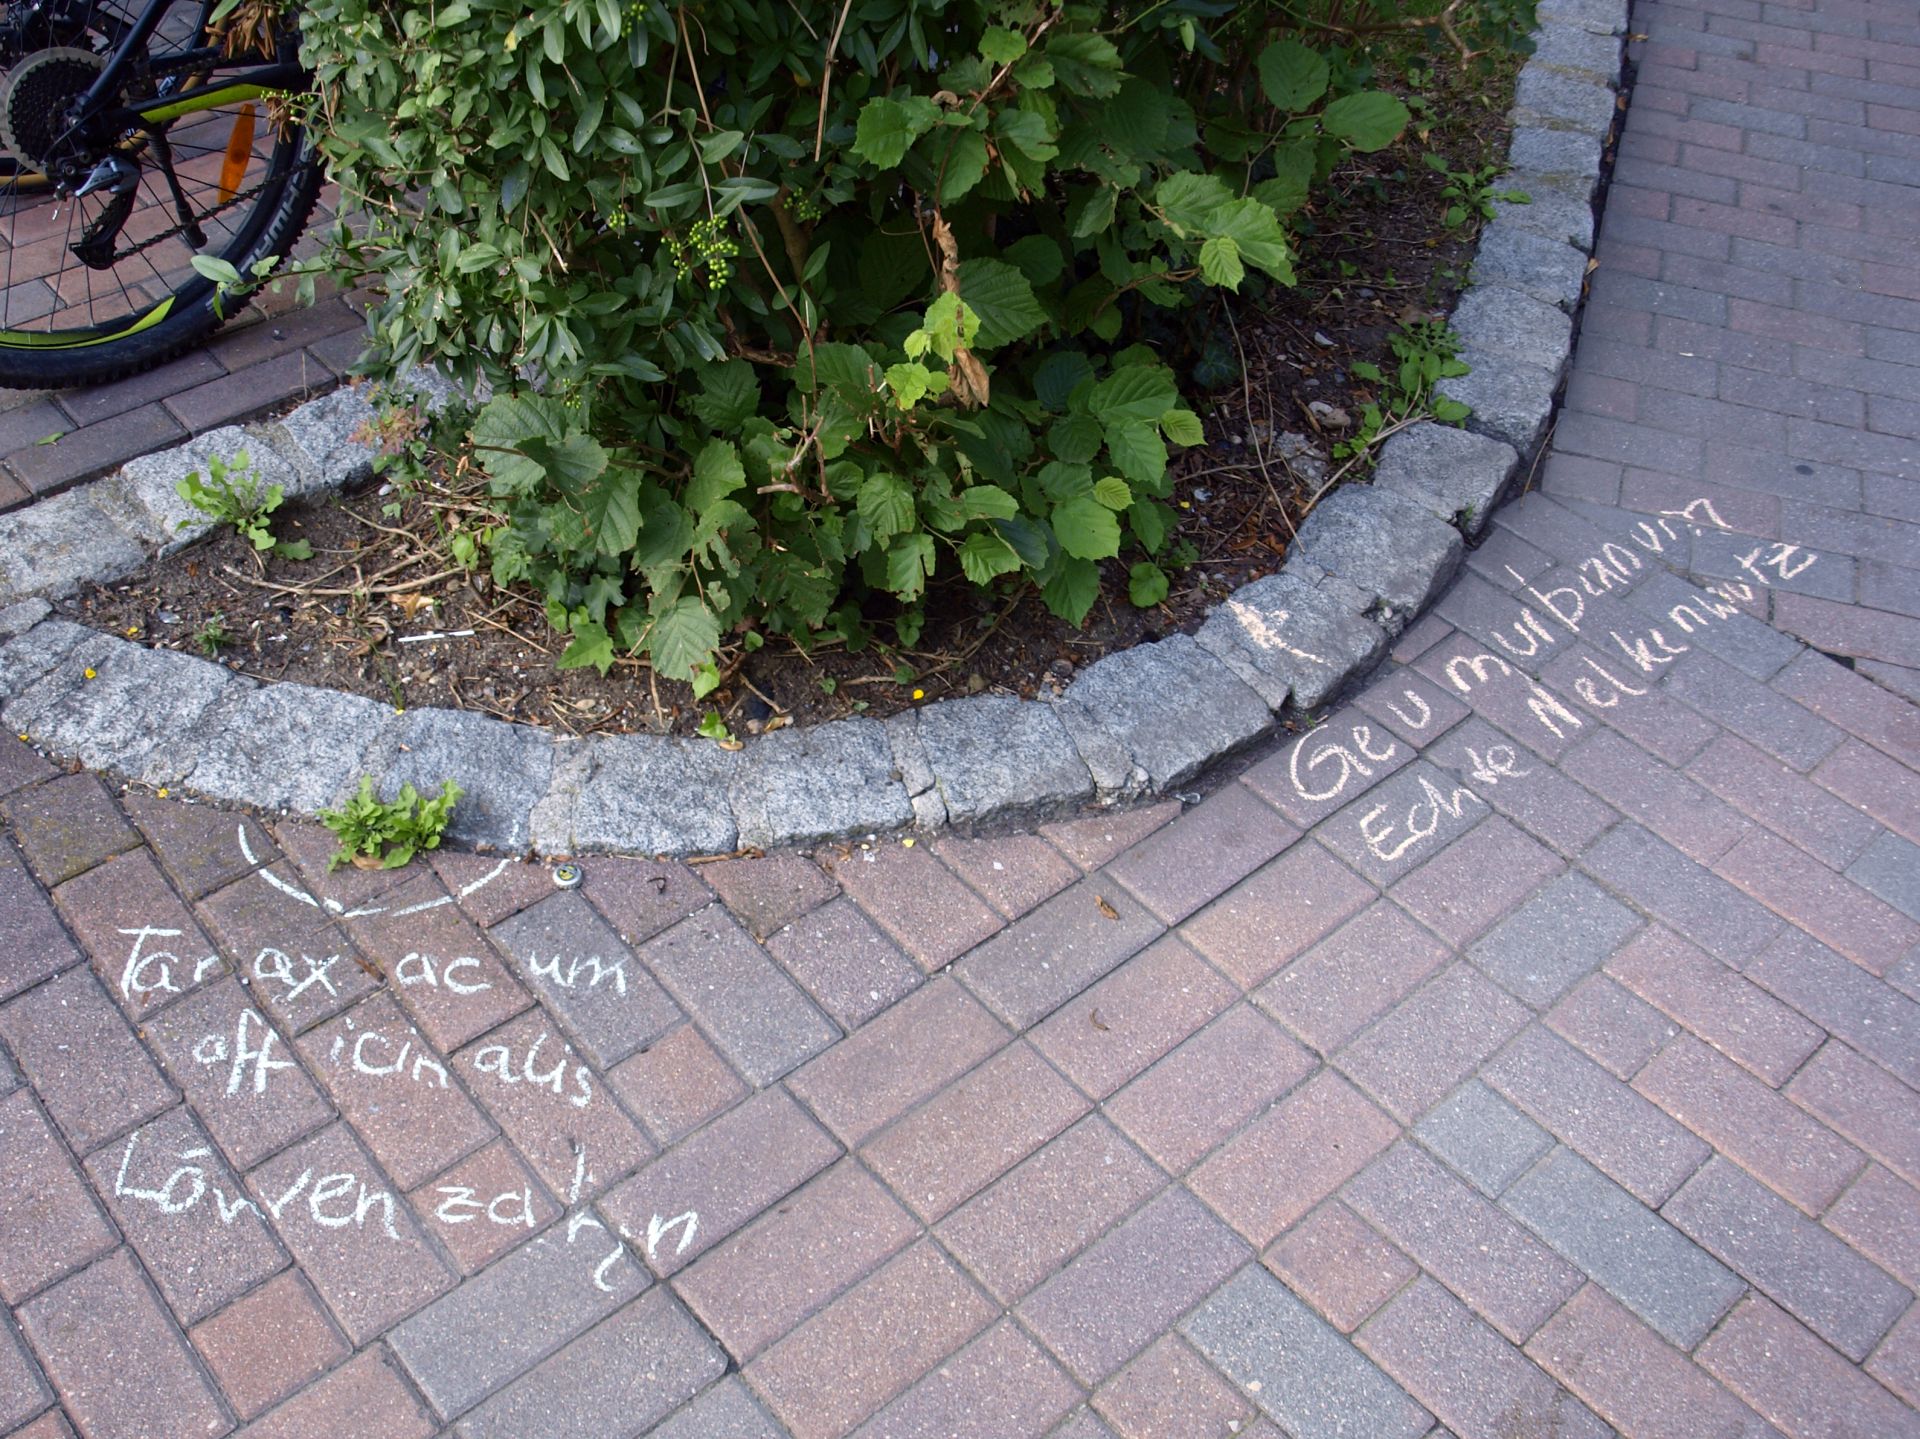 Taraxacum
officinalis
Löwenzahn
Geum urbanum
Echte Nelkenwutz